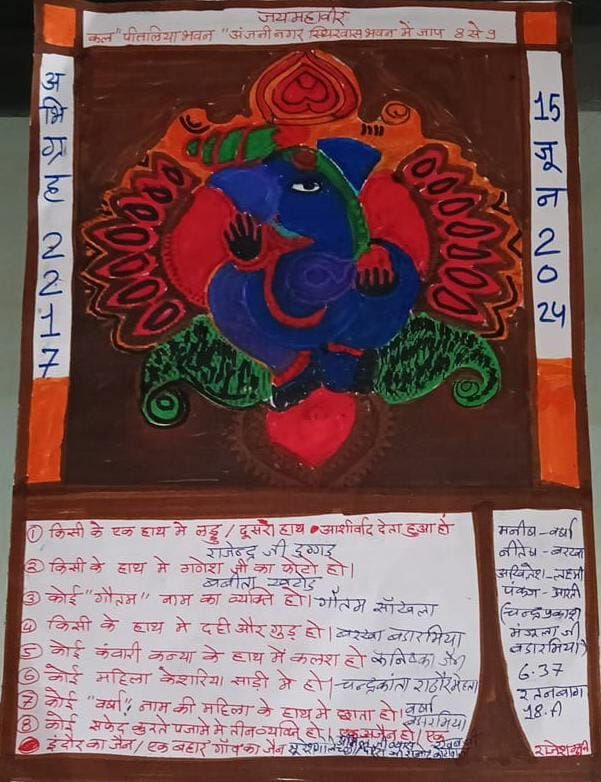 जय महावीर
कल "पीतलिया भवन" अंजनी नगर स्थिरवास भवन में जाप 8 से 9
अभिग्रह 2217
15 जून 2024
① किसी के एक हाथ मे लड्डू / दूसरा हाथ आशीर्वाद देता हुआ हो
राजेन्द्र जी डुग्गड
② किसी के हाथ मे गणेश जी का फोटो हो।
बबीता खटोड
③ कोई "गौतम" नाम का व्यक्ति हो। गौतम साँखला
④ किसी के हाथ मे दही और गुड़ हो। बरखा बडारमिया
⑤ कोई कंवारी कन्या के हाथ में कलश हो कनिष्का जैन
⑥ कोई महिला केशरिया साड़ी मे हो। चन्द्रकांता राठौर मेहता
⑦ कोई "वर्षा" नाम की महिला के हाथ मे छाता हो। वर्षा बडारमिया
⑧ कोई सफेद कुरते पजामे मे तीन व्यक्ति हो। एक
इंदौर का जैन / एक बहार गाँव का जैन
मनीष - वर्षा
नीतेष - बरखा
अखिलेश - लक्ष्मी
पंकज - आरती
(चन्द्रप्रकाश
मंजूला जी
बडारमिया)
6:37
रतनबाग
18.A